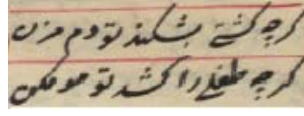 گرچه کشتی بشکند تو دم مزن
گرچه طفلی را کشد تو مو مکن